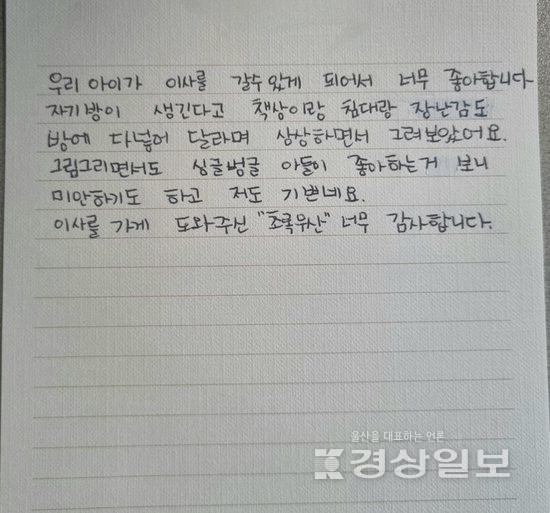 우리 아이가 이사를 갈수있게 되어서 너무 좋아합니다
자기방이 생긴다고 책상이랑 침대랑 장난감도
방에 다넣어 달라며 상상하면서 그려보았어요.
그림그리면서도 싱글벙글 아들이 좋아하는거 보니
미안하기도 하고 저도 기쁘네요.
이사를 가게 도와주신 "초록우산" 너무 감사합니다.
울산을 대표하는 언론
경상일보